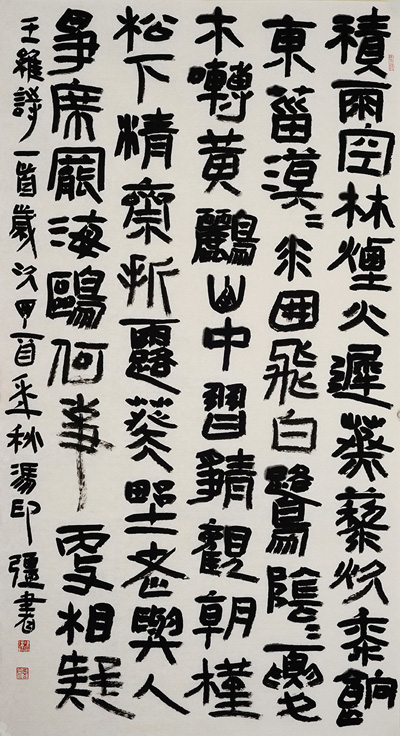 積雨空林煙火遲蒸藜炊黍餉
東菑漠〻水田飛白鷺陰〻夏
木囀黃鸝山中習靜觀朝槿
松下精齋折露葵野老與人
爭席罷海鷗何事更相疑
王維詩一首歲次甲酉年秋馮印彊書